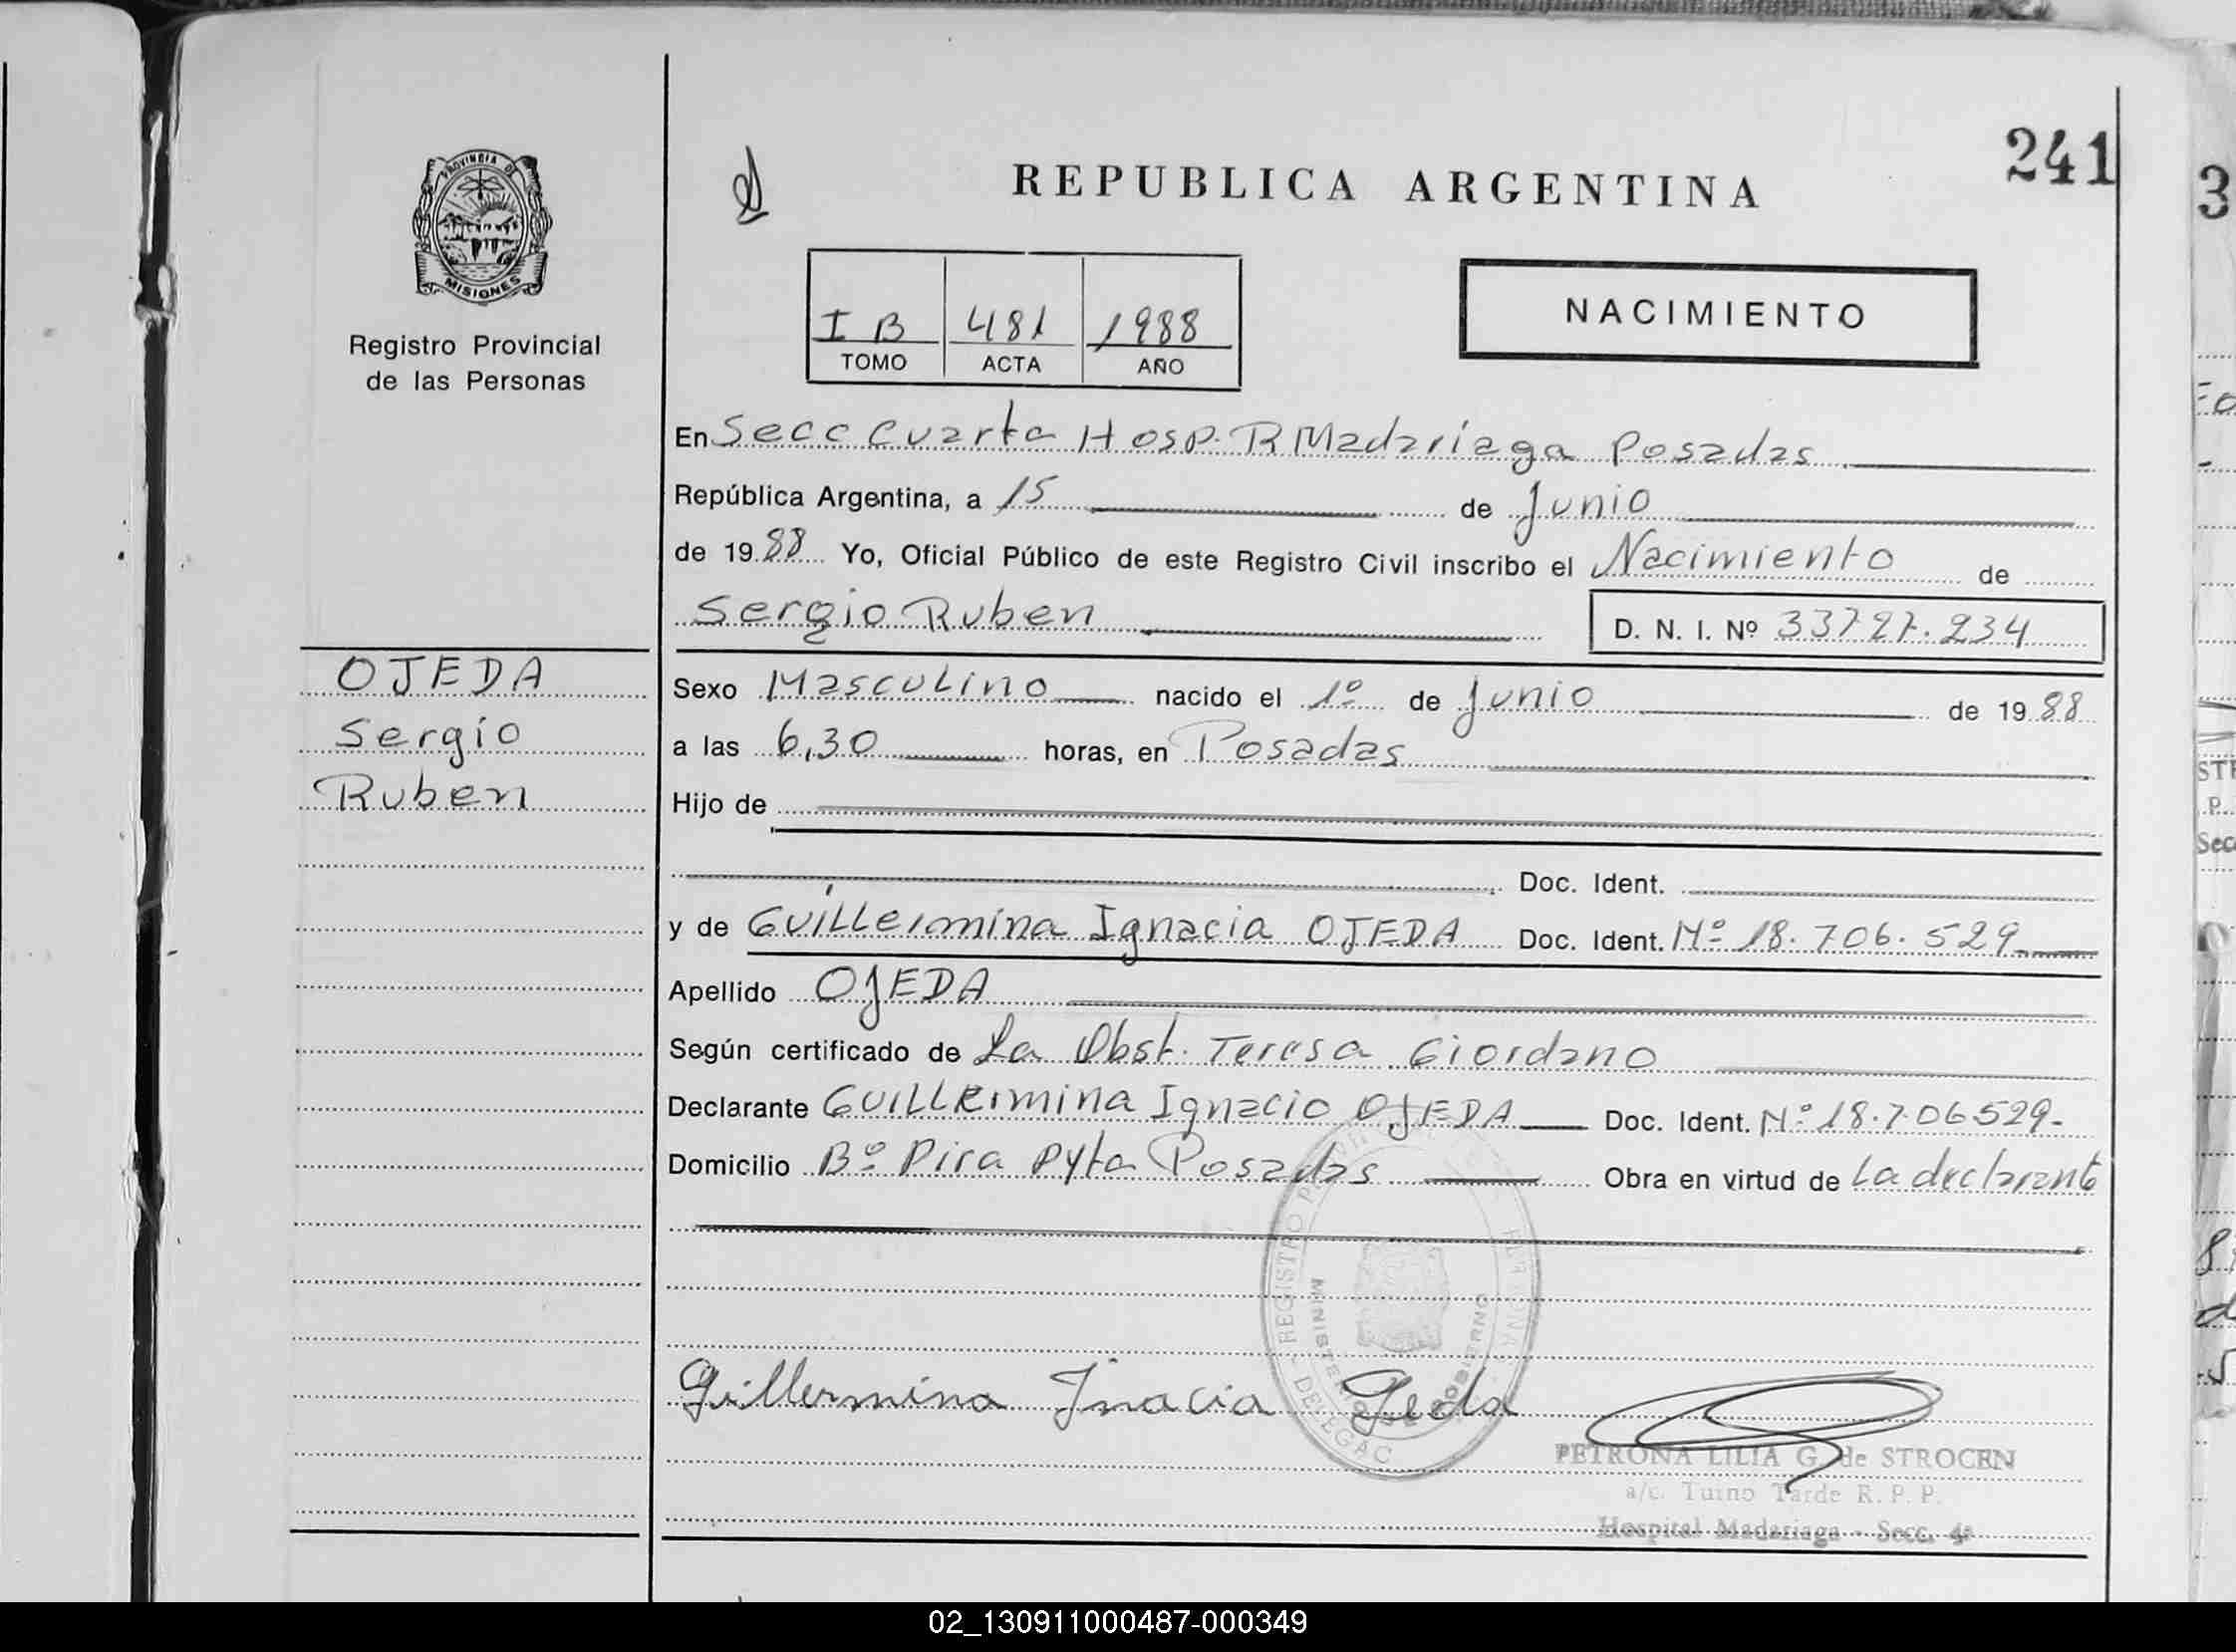 241
REPUBLICA ARGENTINA
PROVINCIA DE
MISIONES
Registro Provincial
de las Personas
I B 481 1988
TOMO ACTA AÑO
NACIMIENTO
En Secc Cuarta Hosp. R Madariaga Posadas
República Argentina, a 15 de Junio
de 1988 Yo, Oficial Público de este Registro Civil inscribo el Nacimiento de
Sergio Ruben D. N. I. Nº 33727.234
OJEDA
Sergio
Ruben
Sexo Masculino nacido el 1º de Junio de 1988
a las 6,30 horas, en Posadas
Hijo de
Doc. Ident.
y de Guillermina Ignacia OJEDA Doc. Ident. Nº 18.706.529
Apellido OJEDA
Según certificado de La Obst. Teresa Giordano
Declarante Guillermina Ignacio OJEDA Doc. Ident. Nº 18.706529-
Domicilio Bº Pira Pyta Posadas Obra en virtud de La declarante
REGISTRO
MINISTERIO GOBIERNO
Guillermina Inacia Ojeda
PETRONA LILIA G. de STROCEN
a/c. Tuino Tarde R. P. P.
Hospital Madariaga - Secc. 4ª
02_130911000487-000349